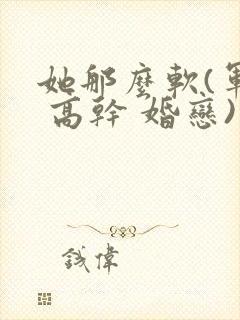 她那麼軟(軍
高幹 婚戀)
錢偉